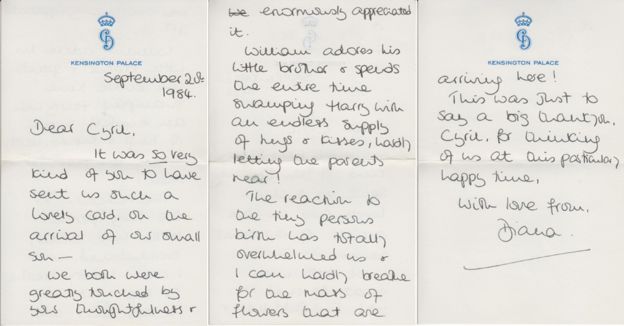 KENSINGTON PALACE
September 20th
1984.
Dear Cyril,
It was so very
kind of you to have
sent us such a
lovely card, on the
arrival of our small
son —
We both were
greatly touched by
your thoughtfulness &
we enormously appreciated
it.
William adores his
little brother & spends
the entire time
swamping Harry with
an endless supply
of hugs & kisses, hardly
letting the parents
near!
The reaction to
one tiny persons
birth has totally
overwhelmed us &
I can hardly breathe
for the mass of
flowers that are
KENSINGTON PALACE
arriving here!
This was just to
say a big thank you,
Cyril, for thinking
of us at this particularly
happy time,
with love from,
Diana.